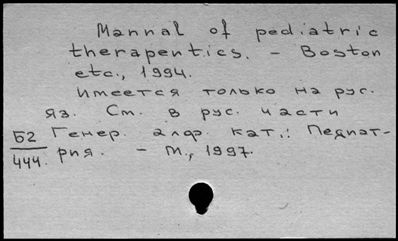 Mannal of pediatric
therapentics. - Boston
etc., 1994.
Имеется только на рус.
яз. См. в рус. части
Б2 Генер. алф. кат.: Педиат-
444. рия. - М., 1997.